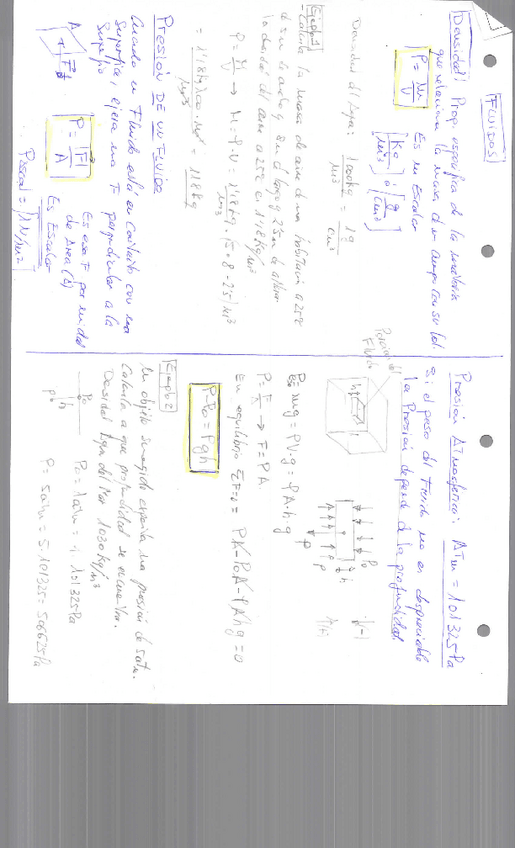 FLUIDOS
Densidad: Prop. específica de la materia
que relaciona la masa de un cuerpo con su vol.
ρ = M/V Es un Escalar [Kg/m³] o [g/cm³]
Densidad del Agua: 1000kg/m³ = 1g/cm³
Ejemplo 1
Calcula la masa de aire de una habitación a 25º
de 5m de ancho y 8m de largo y 2'5m de altura.
la densidad del aire a 25º es 1'18 Kg/m³
ρ = M/V → M = ρ·V = 1'18 kg/m³ · (5·8·2'5) m³
= 118 kg
PRESIÓN DE UN FLUIDO
Cuando un Fluido está en contacto con una
superficie, ejerce una F perpendicular a la
superficie
A F
P = |F|/A
Es una F por unidad
de área (A)
Es Escalar
Pascal = 1N/m²
Presión Atmosférica: ATM = 101325Pa
Si el peso del Fluido no es despreciable
la Presión depende de la profundidad.
Porción del
Fluido
P = mg = ρV·g = ρA·h·g
P = F/A → F = P·A
En equilibrio ΣF=0 = PA-P₀A-ρAhg=0
P-P₀ = ρgh
Ejemplo 2
Un objeto sumergido experimenta una presión de 5atm.
Calcula a que profundidad se encuentra.
Densidad Agua del Mar 1030kg/m³
P₀ = 1atm = 1·101325Pa
P = 5atm = 5·101325=506625Pa